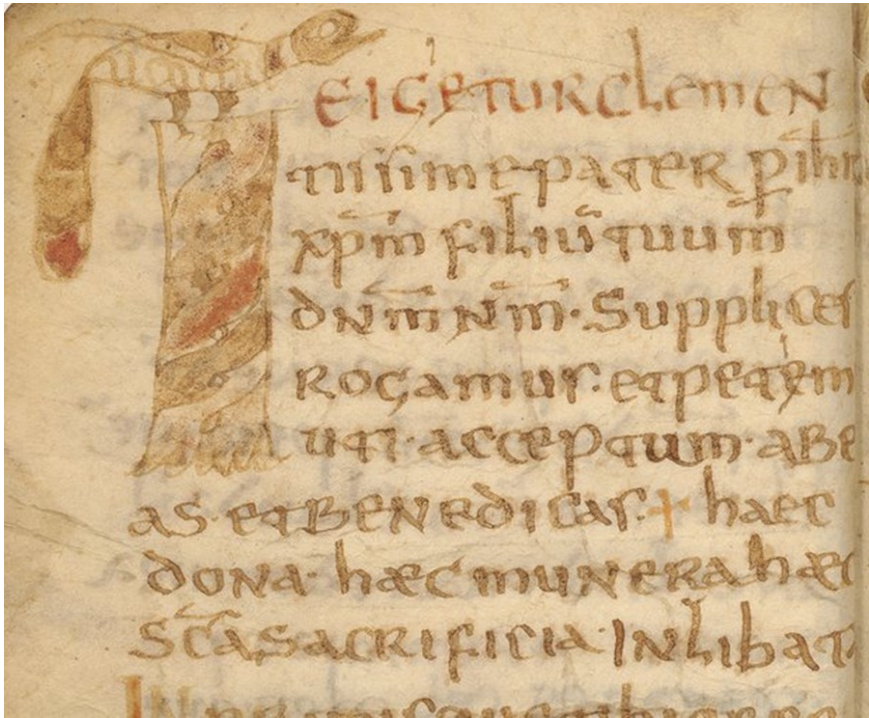 TEIGETUR CLEMEN
tissime pater p̄ ih̄
xp̄m filiū tuum
dn̄m nm̄· Supplices
ROGamus· et petem
uti· acceptum· abe
as· et benedicas· + haec
dona· hæc munera hæc
Sc̄a sacrificia· Inlibat
IN